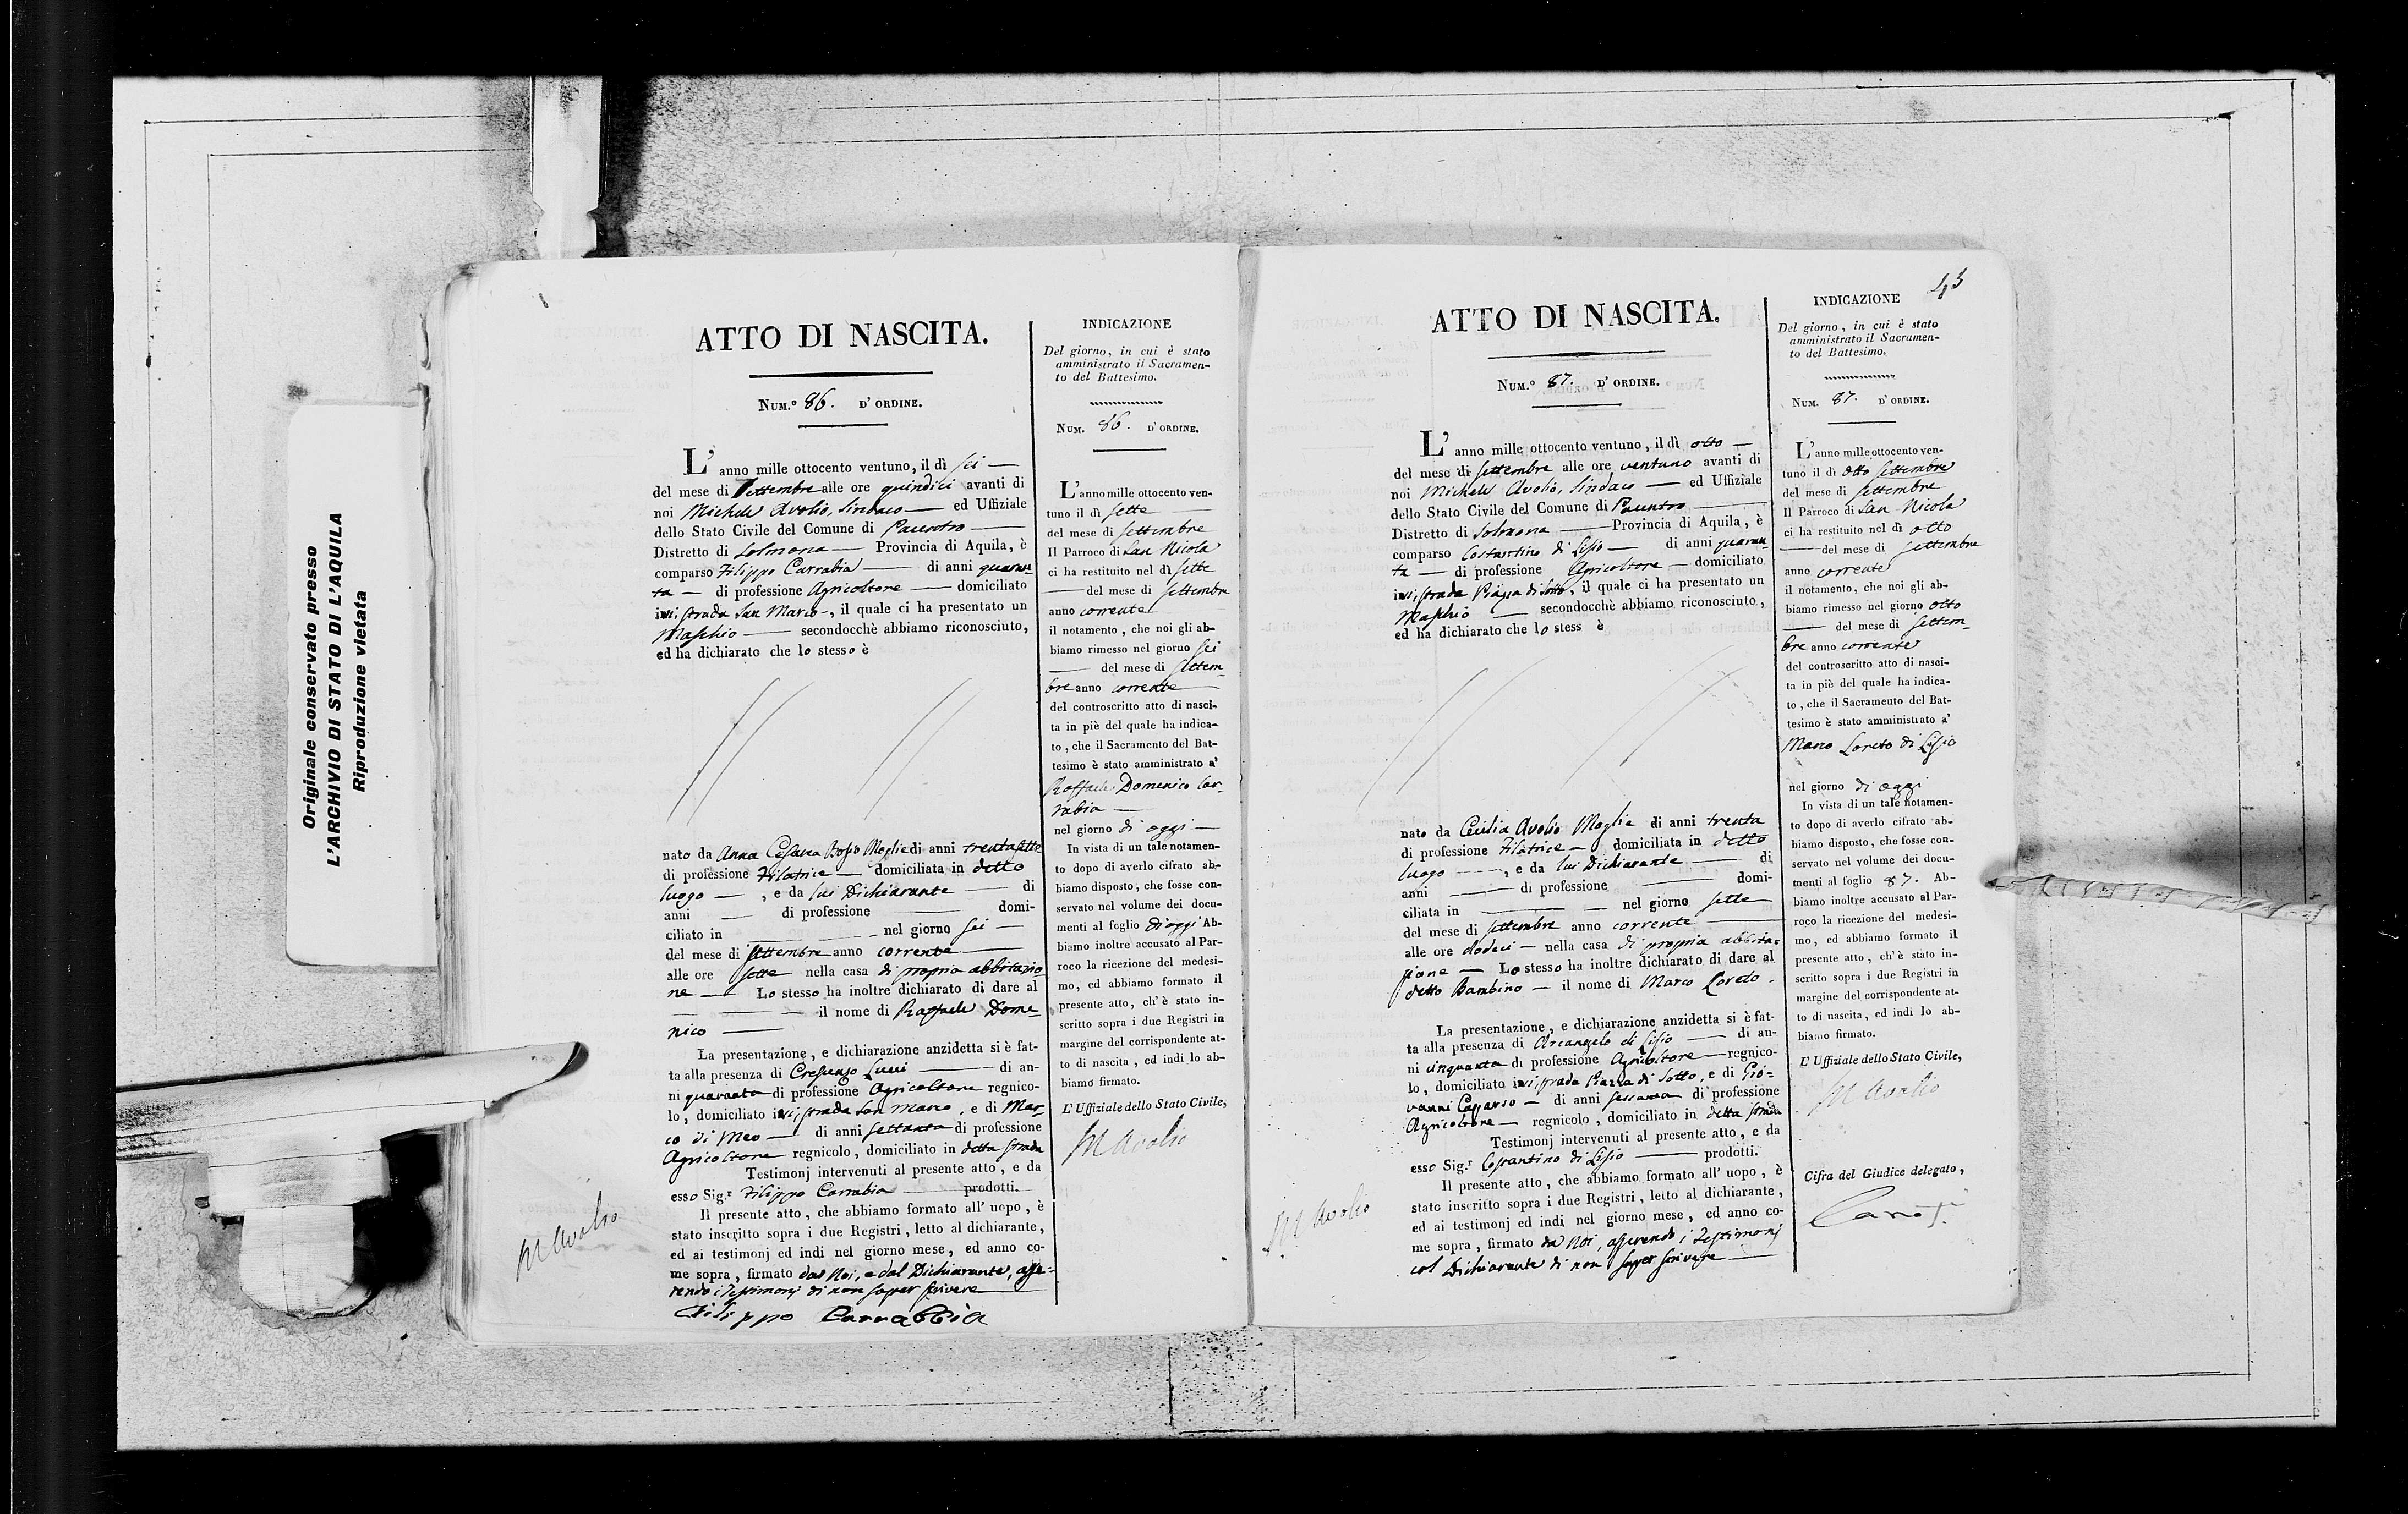 Originale conservato presso
L'ARCHIVIO DI STATO DI L'AQUILA
Riproduzione vietata
ATTO DI NASCITA.
NUM.º 86. D' ORDINE.
L' anno mille ottocento ventuno, il dì sei
del mese di Settembre alle ore quindici avanti di
noi Michele Avolio, Sindaco ed Uffiziale
dello Stato Civile del Comune di Pacentro
Distretto di Solmona Provincia di Aquila, è
comparso Filippo Carrabia di anni quaran-
ta di professione Agricoltore domiciliato
ivi, strada San Marco, il quale ci ha presentato un
Maschio secondocchè abbiamo riconosciuto,
ed ha dichiarato che lo stesso è
nato da Anna Cesarea Rosso Moglie di anni trentasette
di professione Filatrice domiciliata in detto
luogo , e da lui Dichiarante di
anni di professione domi-
ciliato in nel giorno sei
del mese di Settembre anno corrente
alle ore sette nella casa di propria abbitazio-
ne Lo stesso ha inoltre dichiarato di dare al
il nome di Raffaele Dome-
nico
La presentazione, e dichiarazione anzidetta si è fat-
ta alla presenza di Crescenzo di an-
ni quaranta di professione Agricoltore regnico-
lo, domiciliato ivi, strada San Marco, e di Mar-
co di Meo di anni settanta di professione
Agricoltore regnicolo, domiciliato in detta strada
Testimonj intervenuti al presente atto, e da
esso Sig.r Filippo Carrabia prodotti.
Il presente atto, che abbiamo formato all' uopo, è
stato inscritto sopra i due Registri, letto al dichiarante,
ed ai testimonj ed indi nel giorno mese, ed anno co-
me sopra, firmato da Noi, e dal Dichiarante, asse-
rendo i Testimonj di non saper scrivere
Filippo Carrabbia
M Avolio
INDICAZIONE
Del giorno, in cui è stato
amministrato il Sacramen-
to del Battesimo.
NUM. 86. D' ORDINE.
L' anno mille ottocento ven-
tuno il dì sette
del mese di settembre
Il Parroco di San Nicola
ci ha restituito nel dì sette
del mese di settembre
anno corrente
il notamento, che noi gli ab-
biamo rimesso nel giorno sei
del mese di settem-
bre anno corrente
del controscritto atto di nasci-
ta in piè del quale ha indica-
to, che il Sacramento del Bat-
tesimo è stato amministrato a'
Raffaele Domenico Car-
rabia
nel giorno di oggi
In vista di un tale notamen-
to dopo di averlo cifrato ab-
biamo disposto, che fosse con-
servato nel volume dei docu-
menti al foglio di oggi Ab-
biamo inoltre accusato al Par-
roco la ricezione del medesi-
mo, ed abbiamo formato il
presente atto, ch'è stato in-
scritto sopra i due Registri in
margine del corrispondente at-
to di nascita, ed indi lo ab-
biamo firmato.
L' Uffiziale dello Stato Civile,
M Avolio
43
ATTO DI NASCITA.
NUM.º 87. D' ORDINE.
L' anno mille ottocento ventuno, il dì otto
del mese di settembre alle ore ventuno avanti di
noi Michele Avolio, Sindaco ed Uffiziale
dello Stato Civile del Comune di Pacentro
Distretto di Solmona Provincia di Aquila, è
comparso Costantino di Lisio di anni quaran-
ta di professione Agricoltore domiciliato
ivi, strada Piazza di Sotto, il quale ci ha presentato un
Maschio secondocchè abbiamo riconosciuto,
ed ha dichiarato che lo stess è
nato da Cecilia Avolio Moglie di anni trenta
di professione Filatrice domiciliata in detto
luogo , e da lui Dichiarante di
anni di professione domi-
ciliata in nel giorno sette
del mese di settembre anno corrente
alle ore dodeci nella casa di propria abbita-
zione Lo stesso ha inoltre dichiarato di dare al
detto Bambino il nome di Marco Loreto.
La presentazione, e dichiarazione anzidetta si è fat-
ta alla presenza di Arcangelo di Lisio di an-
ni cinquanta di professione Agricoltore regnico-
lo, domiciliato ivi, strada Piazza di Sotto, e di Gio-
vanni di anni sessanta di professione
Agricoltore regnicolo, domiciliato in detta strada
Testimonj intervenuti al presente atto, e da
esso Sig.r Costantino di Lisio prodotti.
Il presente atto, che abbiamo formato all' uopo, è
stato inscritto sopra i due Registri, letto al dichiarante,
ed ai testimonj ed indi nel giorno mese, ed anno co-
me sopra, firmato da Noi, asserendo i Testimonj
col Dichiarante di non saper scrivere
M Avolio
INDICAZIONE
Del giorno, in cui è stato
amministrato il Sacramen-
to del Battesimo.
NUM. 87. D' ORDINE.
L' anno mille ottocento ven-
tuno il dì otto settembre
del mese di settembre
Il Parroco di San Nicola
ci ha restituito nel dì otto
del mese di settembre
anno corrente
il notamento, che noi gli ab-
biamo rimesso nel giorno otto
del mese di settem-
bre anno corrente
del controscritto atto di nasci-
ta in piè del quale ha indica-
to, che il Sacramento del Bat-
tesimo è stato amministrato a'
Marco Loreto di Lisio
nel giorno di oggi
In vista di un tale notamen-
to dopo di averlo cifrato ab-
biamo disposto, che fosse con-
servato nel volume dei docu-
menti al foglio 87. Ab-
biamo inoltre accusato al Par-
roco la ricezione del medesi-
mo, ed abbiamo formato il
presente atto, ch'è stato in-
scritto sopra i due Registri in
margine del corrispondente at-
to di nascita, ed indi lo ab-
biamo firmato.
L' Uffiziale dello Stato Civile,
M Avolio
Cifra del Giudice delegato,